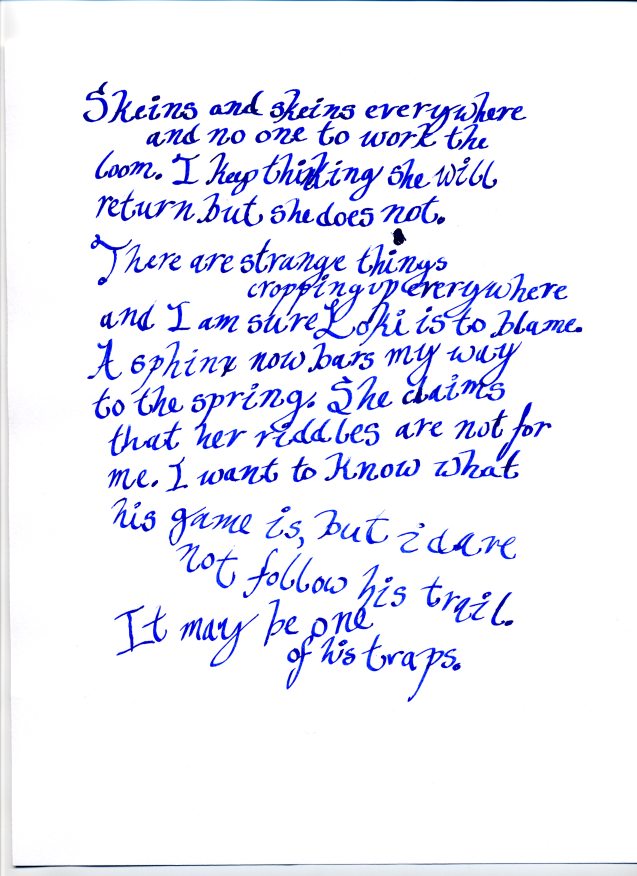 Skeins and skeins everywhere
and no one to work the
loom. I keep thinking she will
return but she does not.
There are strange things
cropping up everywhere
and I am sure Loki is to blame.
A sphinx now bars my way
to the spring. She claims
that her riddles are not for
me. I want to know what
his game is, but i dare
not follow his trail.
It may be one
of his traps.